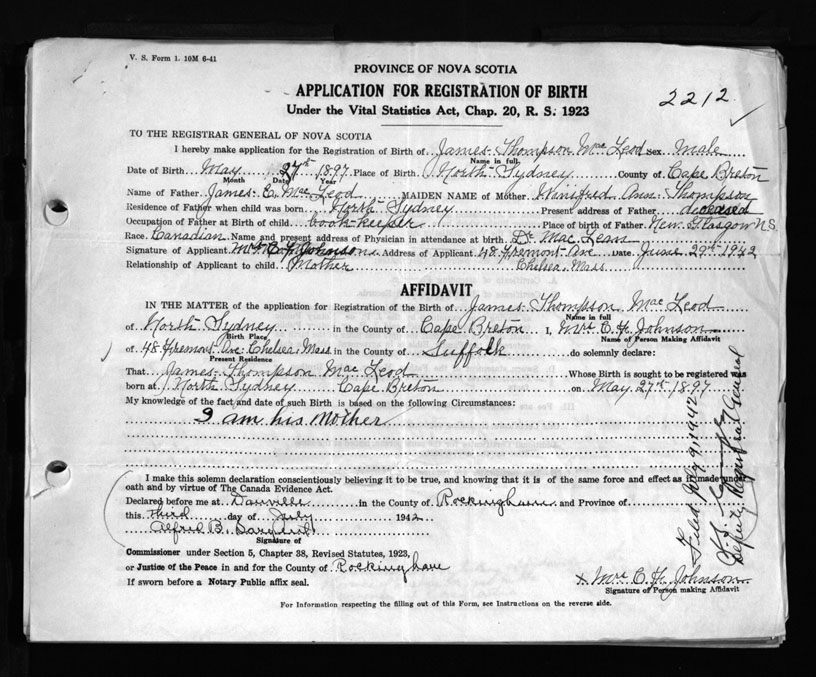 V. S. Form 1. 10M 6-41
PROVINCE OF NOVA SCOTIA
APPLICATION FOR REGISTRATION OF BIRTH
2212
Under the Vital Statistics Act, Chap. 20, R. S. 1923
TO THE REGISTRAR GENERAL OF NOVA SCOTIA
I hereby make application for the Registration of Birth of James Thompson Mac Leod Sex Male
Name in full
Date of Birth May 27th 1897 Place of Birth North Sydney County of Cape Breton
Month Date Year
Name of Father James C. Mac Leod MAIDEN NAME of Mother Winifred Ann Thompson
Residence of Father when child was born North Sydney Present address of Father deceased
Occupation of Father at Birth of child book-keeper Place of birth of Father New Glasgow N.S.
Race Canadian Name and present address of Physician in attendance at birth Dr Mac Lean
Signature of Applicant Mrs C. H. Johnson Address of Applicant 48 Fremont Ave Date June 29th 1942
Relationship of Applicant to child Mother Chelsea Mass
AFFIDAVIT
IN THE MATTER of the application for Registration of the Birth of James Thompson Mac Leod
Name in full
of North Sydney in the County of Cape Breton I, Mrs C. H. Johnson
Birth Place Name of Person Making Affidavit
of 48 Fremont Ave Chelsea Mass in the County of Suffolk do solemnly declare:
Present Residence
That James Thompson Mac Leod Whose Birth is sought to be registered was
born at North Sydney Cape Breton on May 27th 1897
My knowledge of the fact and date of such Birth is based on the following Circumstances:
I am his Mother
I make this solemn declaration conscientiously believing it to be true, and knowing that it is of the same force and effect as if made under
oath and by virtue of The Canada Evidence Act.
Declared before me at Danville in the County of Rockingham and Province of
this third day of July 1942
Alfred B. Sargent
Signature of
Commissioner under Section 5, Chapter 38, Revised Statutes, 1923,
or Justice of the Peace in and for the County of Rockingham
If sworn before a Notary Public affix seal.
x Mrs C. H. Johnson
Signature of Person making Affidavit
For Information respecting the filling out of this Form, see Instructions on the reverse side.
Filed July 9, 1942
Deputy Registrar General